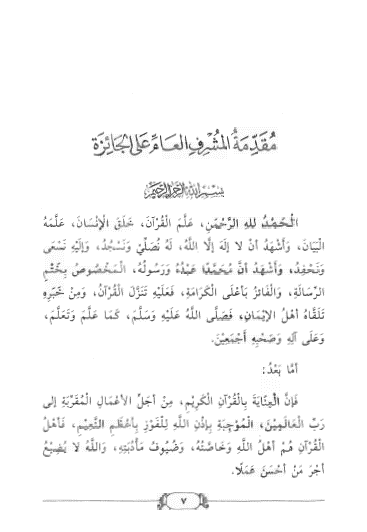 مُقَدِّمَةُ المُشْرِفِ العَامِّ عَلَى الجَائِزَةِ
بِسْمِ اللَّهِ الرَّحْمَنِ الرَّحِيمِ
الْحَمْدُ للهِ الرَّحْمٰنِ، عَلَّمَ الْقُرْآنَ، خَلَقَ الْإِنْسَانَ، عَلَّمَهُ
الْبَيَانَ، وَأَشْهَدُ أَنْ لَا إِلَهَ إِلَّا اللَّهُ، لَهُ نُصَلِّيْ وَنَسْجُدُ، وَإِلَيْهِ نَسْعَى
وَنَحْفِدُ، وَأَشْهَدُ أَنَّ مُحَمَّدًا عَبْدُهُ وَرَسُولُهُ، الْمَخْصُوصُ بِخَتْمِ
الرِّسَالَةِ، وَالْفَائِزُ بِأَعْلَى الْكَرَامَةِ، فَعَلَيْهِ تَنَزَّلَ الْقُرْآنُ، وَمِنْ خَبَرِهِ
تَلَقَّاهُ أَهْلُ الْإِيْمَانِ، فَصَلَّى اللَّهُ عَلَيْهِ وَسَلَّمَ، كَمَا عَلَّمَ وَتَعَلَّمَ،
وَعَلَى آلِهِ وَصَحْبِهِ أَجْمَعِيْنَ.
أَمَّا بَعْدُ:
فَإِنَّ الْعِنَايَةَ بِالْقُرْآنِ الْكَرِيْمِ، مِنْ أَجَلِّ الْأَعْمَالِ الْمُقَرِّبَةِ إِلَى
رَبِّ الْعَالَمِيْنَ، الْمُوْجِبَةِ بِإِذْنِ اللَّهِ لِلْفَوْزِ بِأَعْظَمِ النَّعِيْمِ، فَأَهْلُ
الْقُرْآنِ هُمْ أَهْلُ اللَّهِ وَخَاصَّتُهُ، وَضُيُوفُ مَأْدُبَتِهِ، وَاللَّهُ لَا يُضِيْعُ
أَجْرَ مَنْ أَحْسَنَ عَمَلًا.
٧